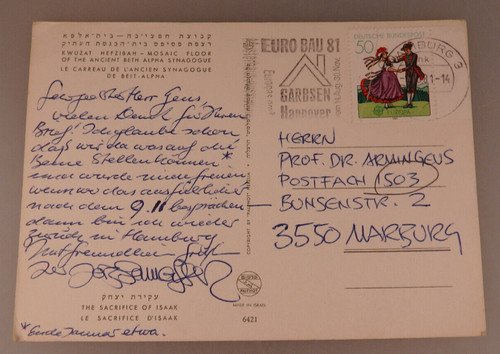 קבוצת חפצי-בה – בית-אלפא
רצפת פסיפס מבית-הכנסת העתיק
KVUZAT HEFZIBAH – MOSAIC FLOOR
OF THE ANCIENT BETH ALPHA SYNAGOGUE
LE CARREAU DE L'ANCIEN SYNAGOGUE
DE BEIT-ALPHA
Herr Gens,
vielen Dank für Ihren
Brief! Ich glaube schon
daß wir da was auf die
Beine stellen können! *
mir würde mich freuen
wenn wir das ausführlich
nach dem 9.11 besprächen
dann bin ich wieder
zurück in Hamburg
Mit freundlichen Grüßen
Ihr
עקידת יצחק
THE SACRIFICE OF ISAAK
LE SACRIFICE D'ISAAK
* Ende Januar etwa.
MADE IN ISRAEL
6421
EURO BAU 81
GARBSEN
Hannover
DEUTSCHE BUNDESPOST
50
EUROPA
BURG 3
HERRN
PROF. DR. ARMIN GEUS
POSTFACH 1503
BUNSENSTR. 2
3550 MARBURG